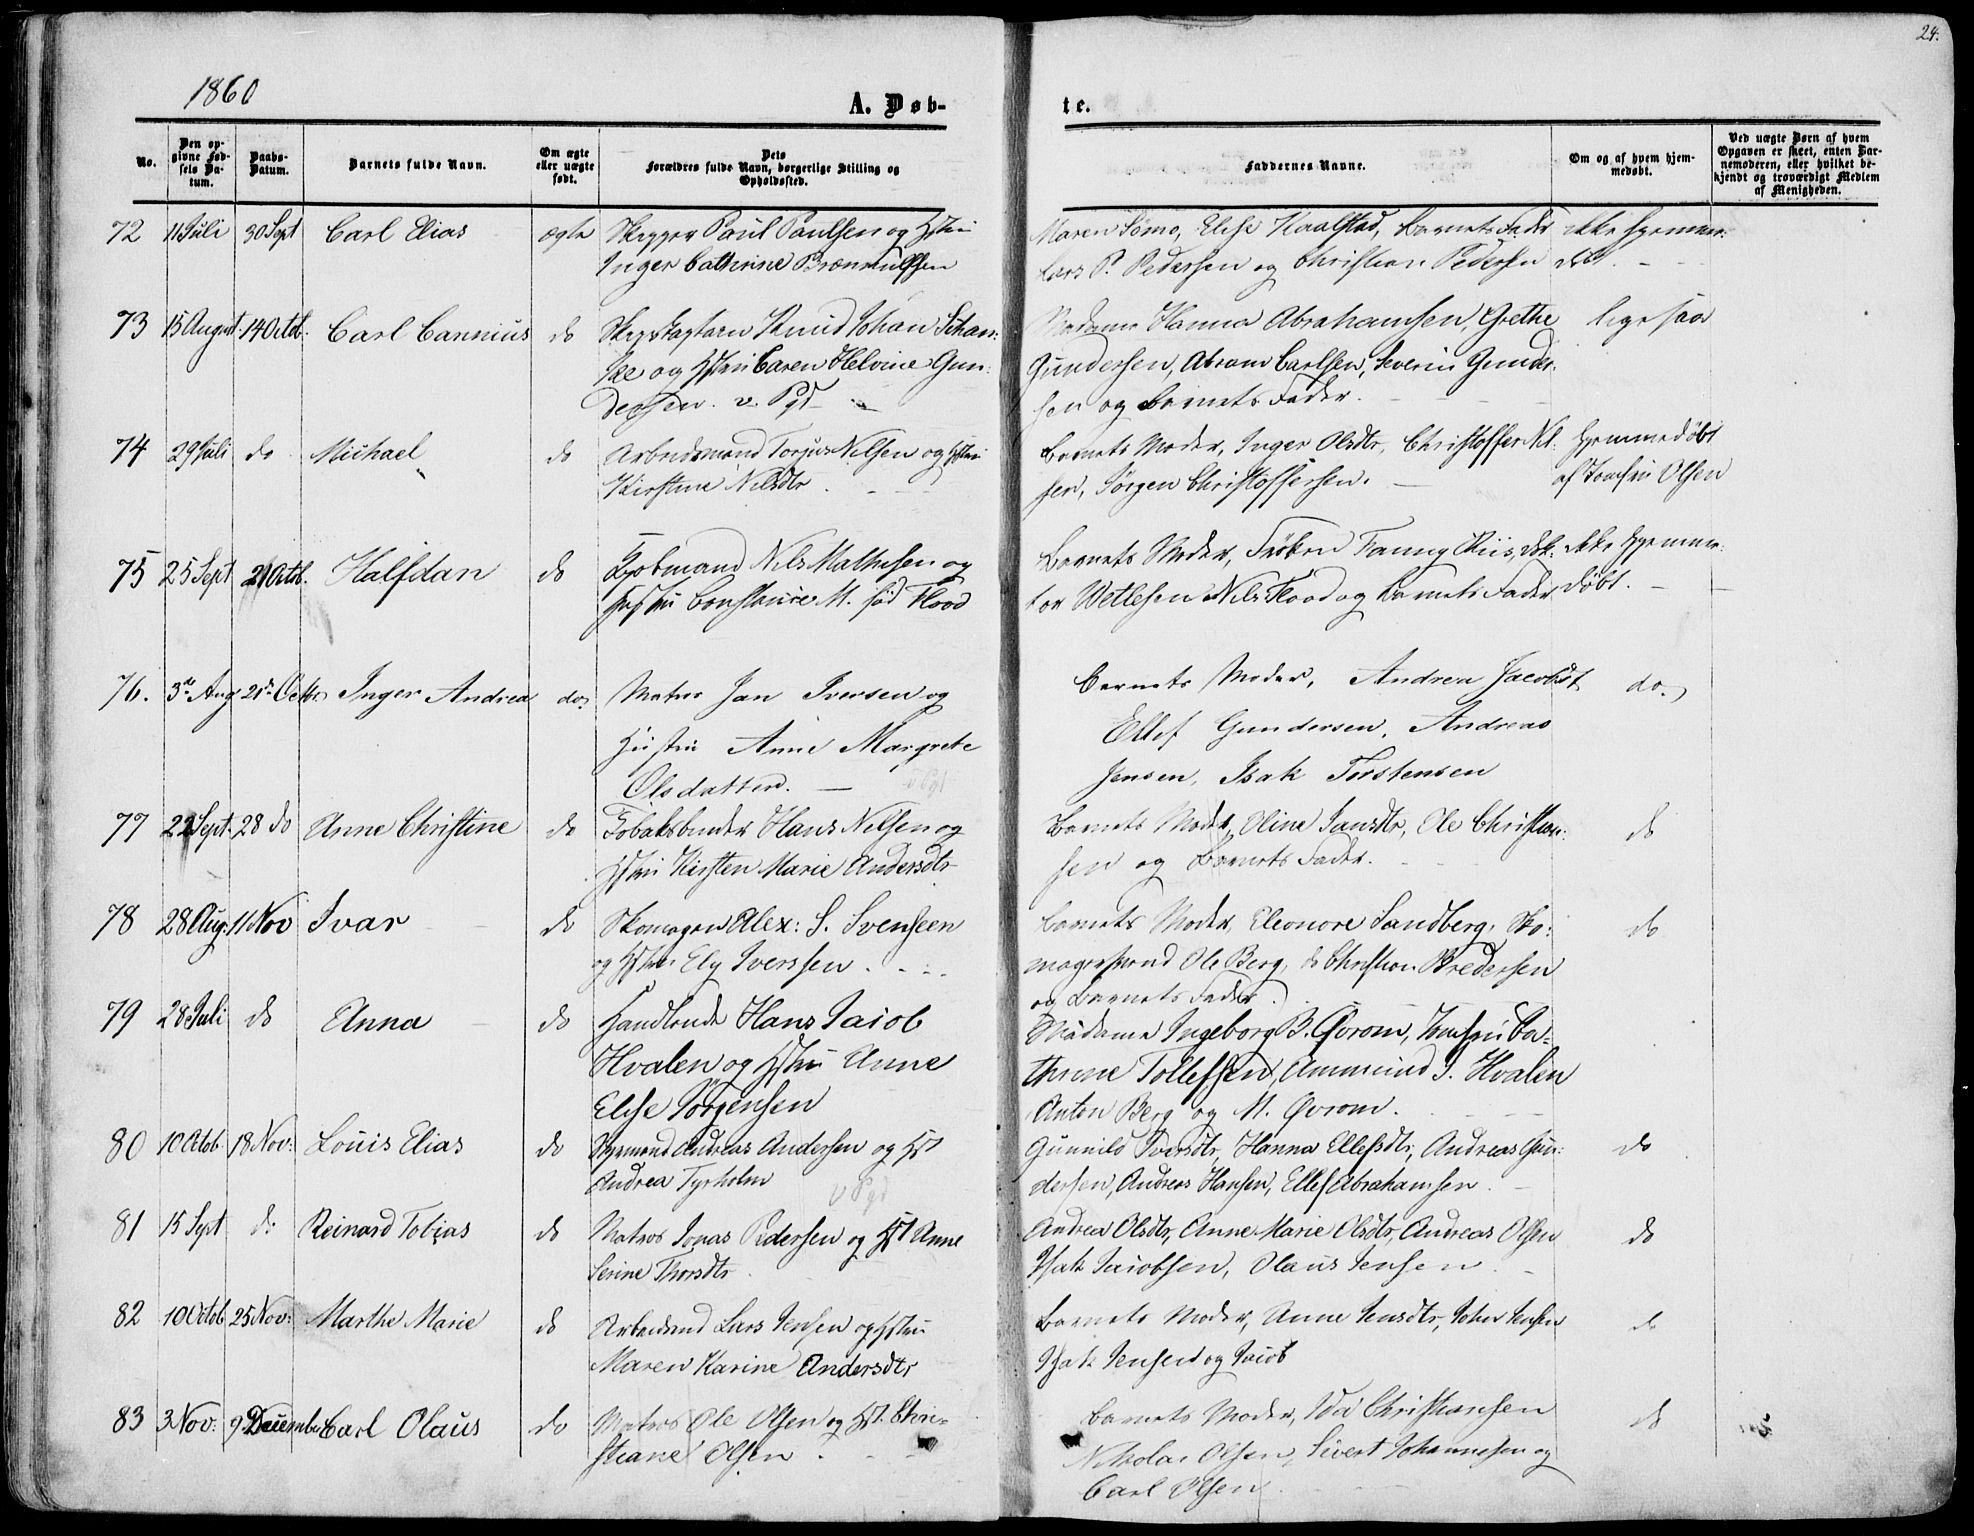 24.
1860
A. Døb-
te.
No.
Den op-
givne Fød-
sels Da-
tum.
Daabs-
Datum.
Barnets fulde Navn.
Om ægte
eller uægte
født.
Dets
Forældres fulde Navn, borgerlige Stilling og
Opholdssted.
Faddernes Navne.
Om og af hvem hjem-
medøbt.
Ved uægte Børn af hvem
Opgaven er skeet, enten Bar-
nemoderen, eller hvilket be-
kjendt og troværdigt Medlem
af Menigheden.
72 11 Juli 30 Sept Carl Elias ægte Skipper Paul Paulsen og Hstru
Inger Cathrine
Maren Sømo, Elise Kaalstad, Barnets Fader ikke hjemme-
Lars P. Pedersen og Christian Pedersen døbt.
73 15 August. 14 Octob. Carl Cannius do Knud Johan Schan-
ke og Hstru Caren Helvine Gun-
dersen. v. Pgd
Madame Hanna Abrahamsen, Grethe ligesaa
Gundersen, Abram Carlsen, Severin Gunder-
sen og Barnets Fader.
74 29 Juli do Michael do Arbeidsmand Torjus Nilsen og Hstru
Kirstine Nilsdtr.
Barnets Moder, Inger Olsdtr, Christoffer Nil- hjemmedøbt
sen, Jørgen Christoffersen. af Jomfru Olsen
75 25 Sept 21 Octb. Halfdan do Kjøbmand Nils Mathesen og
Hustru Constance M. fød Flood
Barnets Moder, Frøken Fanny Kiis, Dok- ikke hjemme-
tor Wetlesen Nils Flood og Barnets Fader døbt.
76. 3de Aug 21de Octbr. Inger Andrea do. Matros Jan Iversen og
Hustru Anne Margrete
Olsdatter. v Pgd
Barnets Moder, Andrea Jacobsdt do.
Ellef Gundersen, Andreas
Jensen, Isak Torstensen
77 22 Sept. 28 do Anne Christine do Tobaksbinder Hans Nilsen og
Hstru Kirsten Marie Andersdtr
Barnets Moder, Oline Jansdtr, Ole Christian- do
sen og Barnets Fader.
78 28 Aug. 11 Nov Ivar do Skomager Alex: S. Svensen
og Hstru Ely Iverssen.
Barnets Moder, Eleonore Sandberg, Sko- do
magersvend Ole Berg, do Christian Bredersen
og Barnets Fader.
79 28 Juli do Anna do Handlende Hans Jacob
Hvalen og Hstru Anne
Elise Jørgensen
Madame Ingeborg B. Øvrom, Jomfru Ca-
thrine Tollefsen, Ammund J. Hvalen
Anton Berg og M. Øvrom.
80 10 Octob 18 Nov: Louis Elias do Styrmand Andreas Andersen og Hst
Andrea Tyrholm v Pgd
Gunnild Iversdtr, Hanna Ellefsdtr, Andreas Gun- do
dersen, Andreas Hansen, Ellef Abrahamsen.
81 15 Sept do Reinard Tobias do Matros Jonas Pedersen og Hst Anne
Serine Thorsdtr
Andrea Olsdtr, Anne Marie Olsdtr, Andreas Olsen do
Isak Jacobsen, Olaus Jensen.
82 10 Octob 25 Nov: Marthe Marie do Arbeidsmd Lars Jensen og Hstru
Maren Karine Andersdtr
Barnets Moder, Anne Jensdtr, Johan Jensen do
Isak Jensen og Jacob
83 3 Nov: 9 December Carl Olaus do Matros Ole Olsen og Hst. Chri-
stiane Olsen.
Barnets Moder, Ida Christiansen do
Nikolai Olsen, Sivert Johannesen og
Carl Olsen.